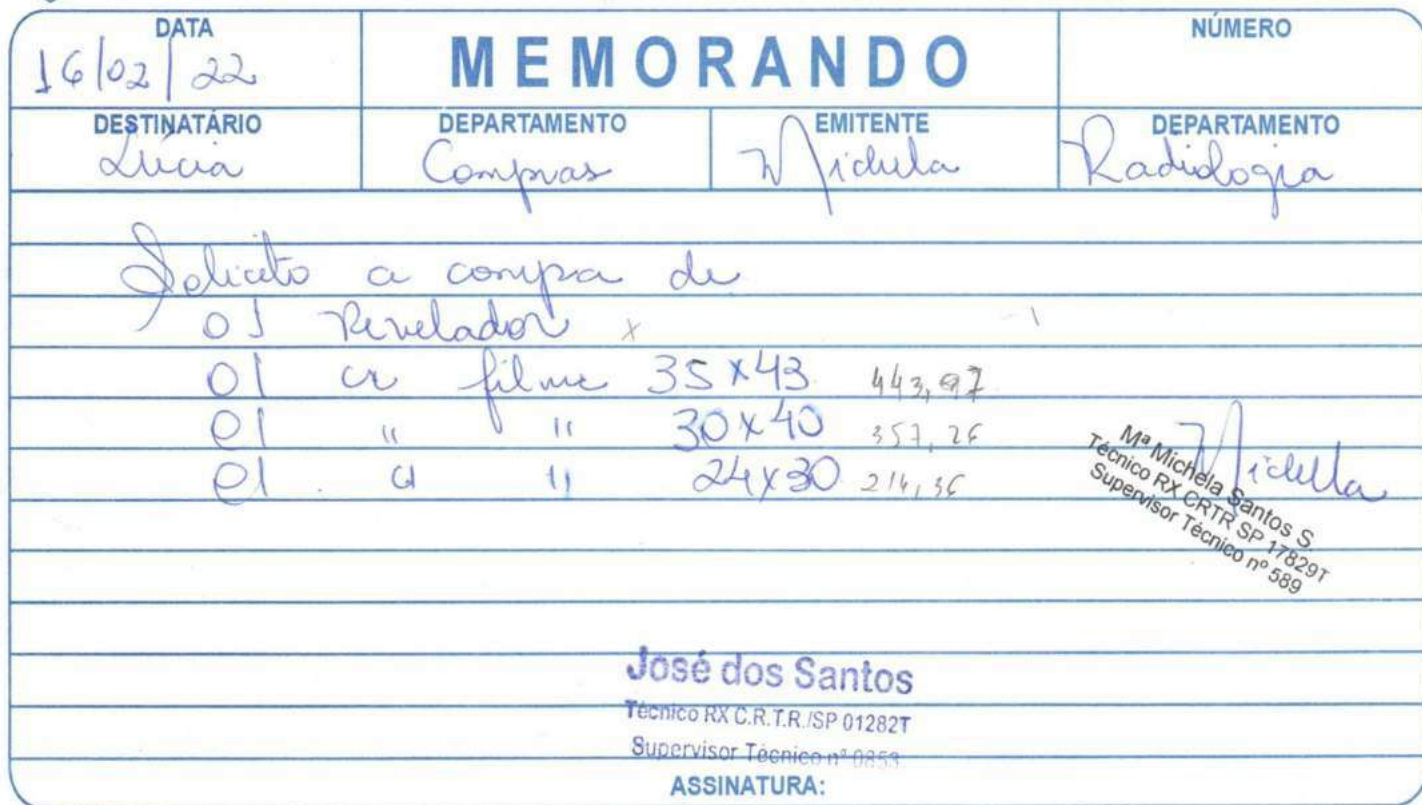 DATA
16/02/22
MEMORANDO
NÚMERO
DESTINATÁRIO
Lúcia
DEPARTAMENTO
Compras
EMITENTE
Michela
DEPARTAMENTO
Radiologia
Solicito a compra de
01 Revelador x
01 cx filme 35x43 443,97
01 " " 30x40 357,26
01 " " 24x30 214,36
Michella
Mª Michela Santos S.
Técnico RX CRTR SP 17829T
Supervisor Técnico nº 589
José dos Santos
Técnico RX C.R.T.R./SP 01282T
Supervisor Técnico nº 0853
ASSINATURA: